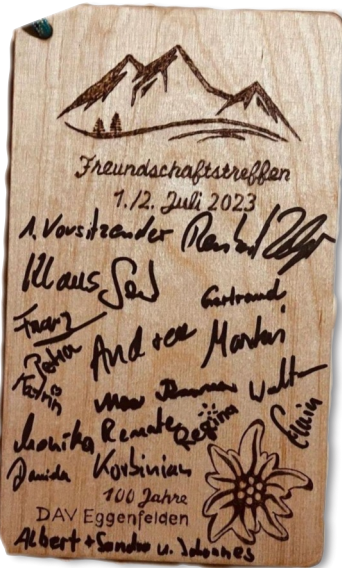 Freundschaftstreffen
1./2. Juli 2023
1. Vorsitzender
Klaus
Gertraud
Franz
Petra
Andrea
Martin
Katrin
Max
Walter
Monika Renate Regina
Daniela Korbinian
100 Jahre
DAV Eggenfelden
Albert + Sandra u. Johannes